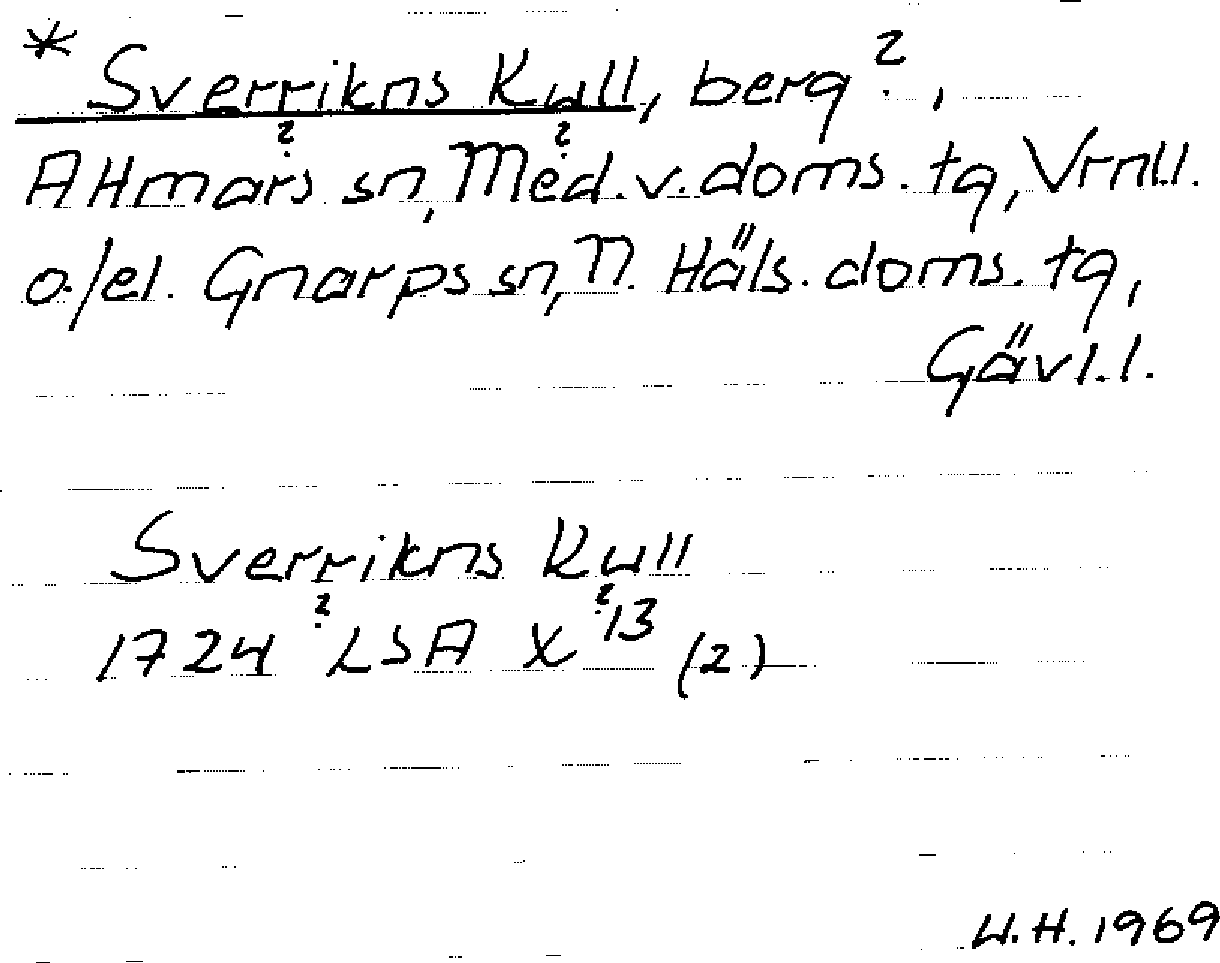 * Sverrikns Kull, berg?,
? ?
Attmars sn, Med.v.doms.tg, Vrnl.l.
o./el. Gnarps sn, N. Häls.doms.tg,
Gävl.l.
Sverrikns Kull
? ?
1724 LSA X 13 (2)
U.H. 1969